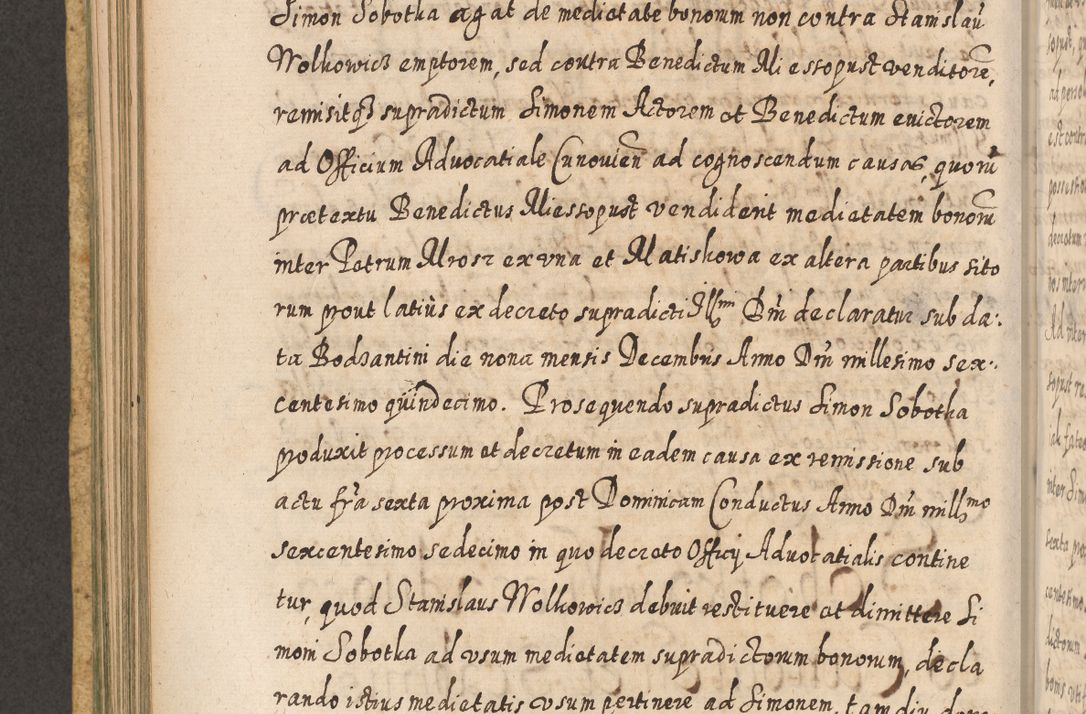 Simon Sobotka agat de medietate bonorum non contra Stanislaū
Wolkowicz emptorem, sed contra Benedictum Miessopust venditorē,
remisitq3 supradictum Simonem Actorem et Benedictum evictorem
ad Officium Advocatiale Cunovien̄ ad cognoscendum causas, quorū
prætextu Benedictus Miessopust vendiderit medietatem bonorū
inter Petrum Mrosz ex vna et Matiskowa ex altera partibus sito
rum prout latiùs ex decreto supradicti Illmi Dni declaratur sub da:
ta Bodzantini die nona mensis Decembris Anno Dni millesimo sex:
centesimo quindecimo. Prosequendo supradictus Simon Sobotka
produxit processum et decretum in eadem causa ex remissione sub
actu fr̄a sexta proxima post Dominicam Conductus Anno Dni millmo
sexcentesimo sedecimo in quo decreto Officij Advocatialis contine
tur, quod Stanislaus Wolkowicz debuit restituere et dimittere Si
moni Sobotka ad vsum medietatem supradictorum bonorum, decla
rando istius medietatis vsum pertinere ad Simonem, tam diu donc